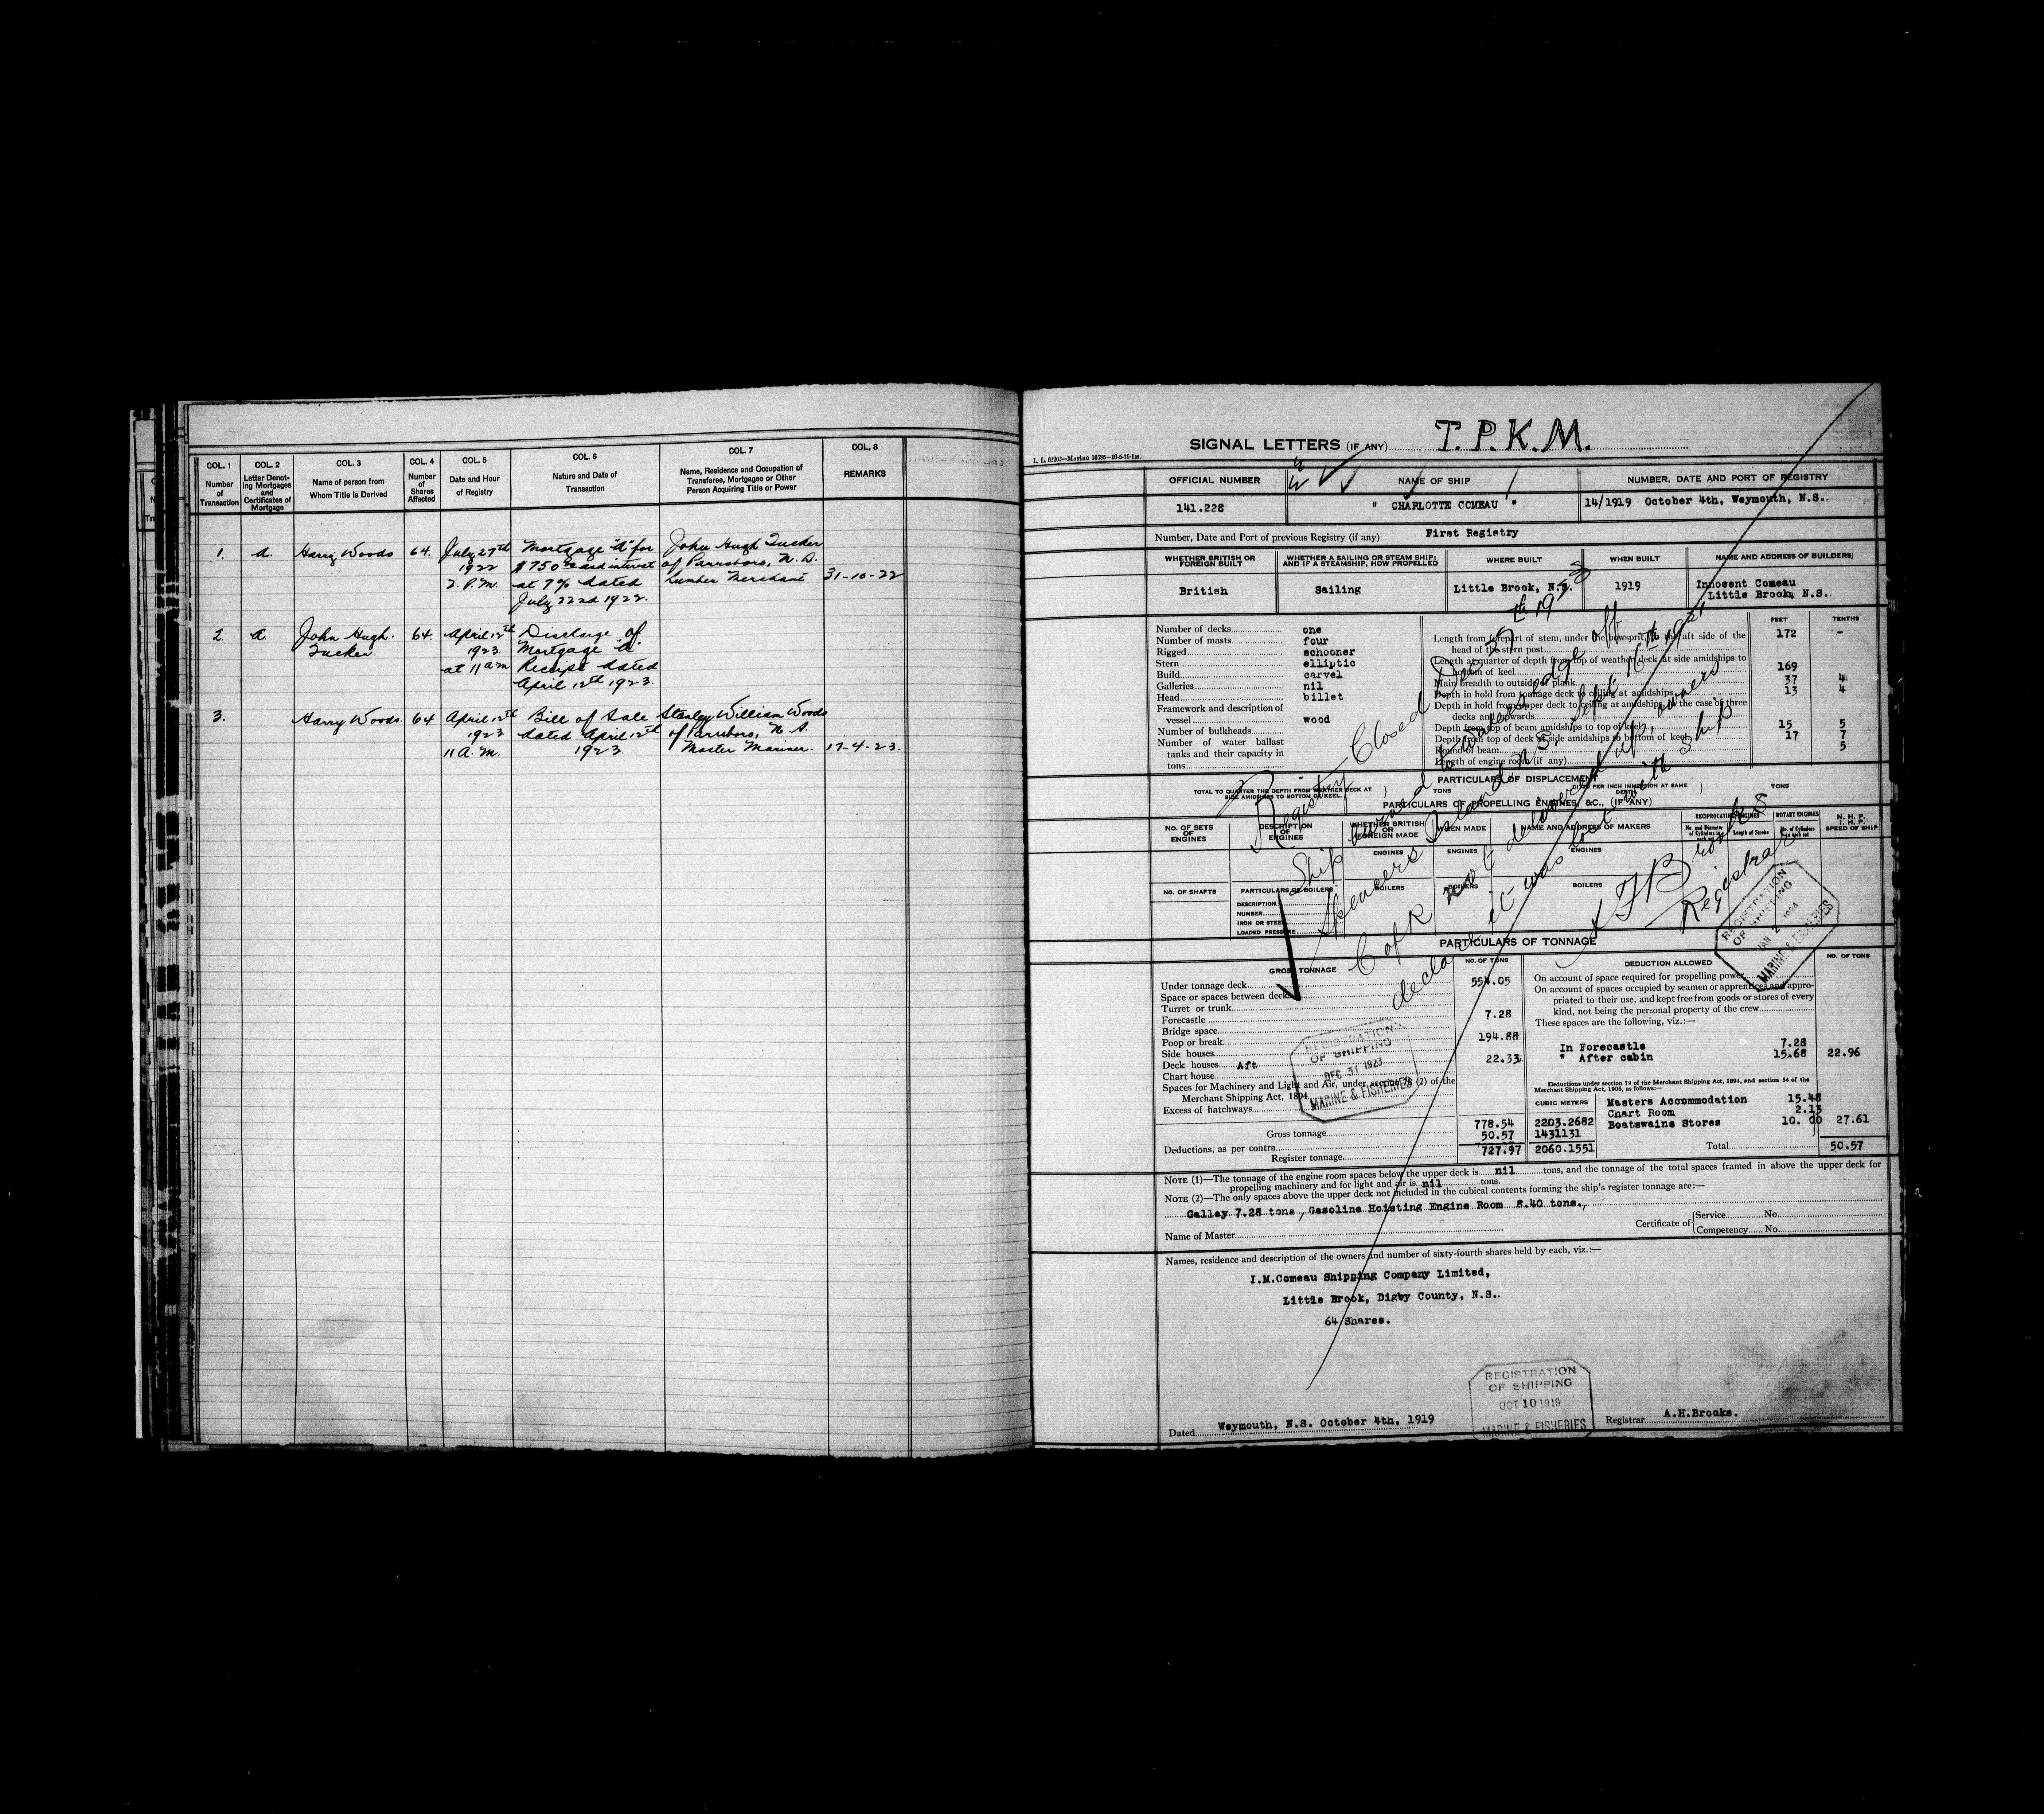 COL. 1
Number
of
Transaction
COL. 2
Letter Denot-
ing Mortgages
and
Certificates of
Mortgage
COL. 3
Name of person from
Whom Title is Derived
COL. 4
Number
of
Shares
Affected
COL. 5
Date and Hour
of Registry
COL. 6
Nature and Date of
Transaction
COL. 7
Name, Residence and Occupation of
Transferee, Mortgagee or Other
Person Acquiring Title or Power
COL. 8
REMARKS
1. a. Harry Woods 64. July 27th Mortgage "A" for John Hugh Tucker
1922 $750 and interest of Parrsboro, N. S.
2. P.M. at 7% dated Lumber Merchant 31-10-22
July 22nd 1922.
2. a. John Hugh 64. April 12th Discharge of
Tucker. 1923. Mortgage "A"
at 11 am Receipt dated
April 12th 1923.
3. Harry Woods. 64 April 12th Bill of Sale Stanley William Woods
1923 dated April 12th of Parrsboro, N. S.
11 A. M. 1923 Master Mariner. 17-4-23.
SIGNAL LETTERS (IF ANY) T.P.K.M.
OFFICIAL NUMBER NAME OF SHIP NUMBER, DATE AND PORT OF REGISTRY
141.228 " CHARLOTTE COMEAU " 14/1919 October 4th, Weymouth, N.S..
Number, Date and Port of previous Registry (if any) First Registry
WHETHER BRITISH OR
FOREIGN BUILT
WHETHER A SAILING OR STEAM SHIP;
AND IF A STEAMSHIP, HOW PROPELLED
WHERE BUILT
WHEN BUILT
NAME AND ADDRESS OF BUILDERS
British Sailing Little Brook, N.S. 1919 Innocent Comeau
Little Brook, N.S..
Number of decks one
Number of masts four
Rigged schooner
Stern elliptic
Build carvel
Galleries nil
Head billet
Framework and description of
vessel wood
Number of bulkheads
Number of water ballast
tanks and their capacity in
tons
FEET TENTHS
Length from forepart of stem, under the bowsprit, to the aft side of the
head of the stern post 172 -
Length at quarter of depth from top of weather deck at side amidships to
bottom of keel 169
Main breadth to outside of plank 37 4
Depth in hold from tonnage deck to ceiling at amidships 13 4
Depth in hold from upper deck to ceiling at amidships, in the case of three
decks and upwards
Depth from top of beam amidships to top of keel 15 5
Depth from top of deck at side amidships to bottom of keel 17 7
Round of beam 5
Length of engine room (if any)
Registry Closed Dec 27th 1923
Ship burned to waters edge off
Spencers Island N.S. Sept 16th 1921
C of R not delivered up owners
declare it was lost with ship
A F Brooks
Registrar
PARTICULARS OF DISPLACEMENT
TOTAL TO QUARTER THE DEPTH FROM WEATHER DECK AT
SIDE AMIDSHIPS TO BOTTOM OF KEEL.
TONS
DITTO PER INCH IMMERSION AT SAME
DEPTH
TONS
PARTICULARS OF PROPELLING ENGINES, &C., (IF ANY)
No. OF SETS
OF
ENGINES
DESCRIPTION
OF
ENGINES
WHETHER BRITISH
OR
FOREIGN MADE
WHEN MADE
NAME AND ADDRESS OF MAKERS
RECIPROCATING ENGINES
No. and Diameter
of Cylinders in
each set
Length of Stroke
ROTARY ENGINES
No. of Cylinders
in each set
N. H. P.
I. H. P.
SPEED OF SHIP
ENGINES ENGINES ENGINES
NO. OF SHAFTS PARTICULARS OF BOILERS BOILERS BOILERS BOILERS
DESCRIPTION
NUMBER
IRON OR STEEL
LOADED PRESSURE
REGISTRATION
OF SHIPPING
JAN 2 1924
MARINE & FISHERIES
PARTICULARS OF TONNAGE
GROSS TONNAGE NO. OF TONS
Under tonnage deck 554.05
Space or spaces between decks
Turret or trunk
Forecastle 7.28
Bridge space
Poop or break 194.88
Side houses
Deck houses Aft 22.33
Chart house
Spaces for Machinery and Light and Air, under section 78 (2) of the
Merchant Shipping Act, 1894
Excess of hatchways
REGISTRATION
OF SHIPPING
DEC 31 1923
MARINE & FISHERIES
CUBIC METERS
Gross tonnage 778.54 2203.2682
Deductions, as per contra 50.57 1431131
Register tonnage 727.97 2060.1551
DEDUCTION ALLOWED NO. OF TONS
On account of space required for propelling power
On account of spaces occupied by seamen or apprentices and appro-
priated to their use, and kept free from goods or stores of every
kind, not being the personal property of the crew
These spaces are the following, viz.:—
In Forecastle 7.28
" After cabin 15.68 22.96
Deductions under section 79 of the Merchant Shipping Act, 1894, and section 54 of the
Merchant Shipping Act, 1906, as follows:—
Masters Accommodation 15.48
Chart Room 2.13
Boatswains Stores 10. 00 27.61
Total 50.57
NOTE (1)—The tonnage of the engine room spaces below the upper deck is nil tons, and the tonnage of the total spaces framed in above the upper deck for
propelling machinery and for light and air is nil tons.
NOTE (2)—The only spaces above the upper deck not included in the cubical contents forming the ship's register tonnage are:—
Galley 7.28 tons, Gasoline Hoisting Engine Room 8.40 tons.,
Name of Master
Certificate of Service No.
Competency No.
Names, residence and description of the owners and number of sixty-fourth shares held by each, viz.:—
I.M.Comeau Shipping Company Limited,
Little Brook, Digby County, N.S..
64 Shares.
REGISTRATION
OF SHIPPING
OCT 10 1919
MARINE & FISHERIES
Dated Weymouth, N.S. October 4th, 1919
Registrar A.H.Brooks.